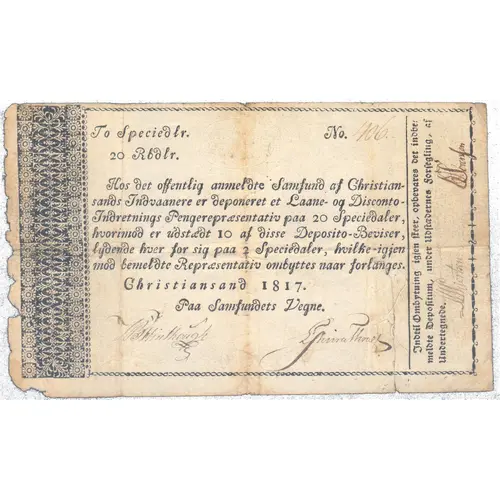 To Speciedlr.
No. 406.
20 Rbdlr.
Hos det offentlig anmeldte Samfund af Christian-
sands Indvaanere er deponeret et Laane- og Disconto-
Indretnings Pengerepræsentativ paa 20 Speciedaler,
hvorimod er udstædt 10 af disse Deposito-Beviser,
lydende hver for sig paa 2 Speciedaler, hvilke-igjen
mod bemeldte Repræsentativ ombyttes naar forlanges.
Christiansand 1817.
Paa Samfundets Vegne.
Indtil Ombytning igjen skeer, opbevares det inbe-
meldte Depositum, under Udstædernes Forsegling, af
Undertegnede.